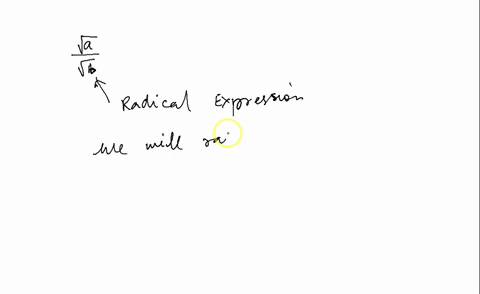 √a
√b
Radical Expression
we will ra